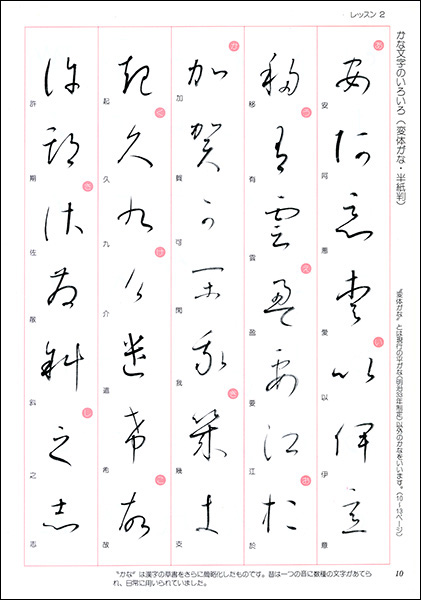 レッスン 2
かな文字のいろいろ(変体がな・半紙判)
〝変体がな〟とは現行の平がな(明治33年制定)以外のかなをいいます。(10〜13ページ)
あ
安
阿
悪
愛
い
以
伊
意
移
う
有
雲
え
盈
要
江
お
於
か
加
賀
可
閑
我
き
幾
支
起
く
久
九
け
介
遣
希
こ
故
許
期
さ
佐
散
斜
し
之
志
〝かな〟は漢字の草書をさらに簡略化したものです。昔は一つの音に数種の文字があてら
れ、日常に用いられていました。
10